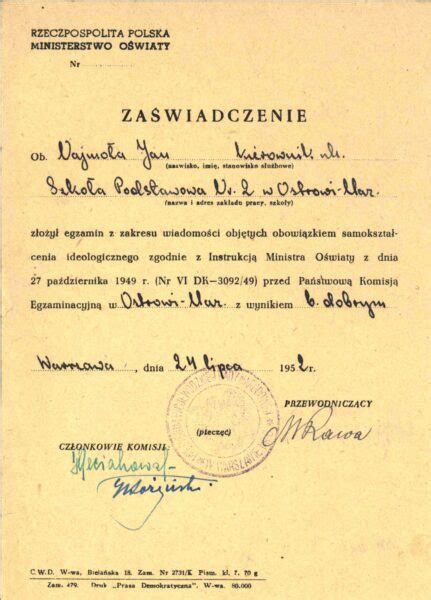 RZECZPOSPOLITA POLSKA
MINISTERSTWO OŚWIATY
Nr
ZAŚWIADCZENIE
Ob. Najmoła Jan Kierownik szk.
(nazwisko, imię, stanowisko służbowe)
Szkoła Podstawowa Nr. 2 w Ostrowi-Maz.
(nazwa i adres zakładu pracy, szkoły)
złożył egzamin z zakresu wiadomości objętych obowiązkiem samokształ-
cenia ideologicznego zgodnie z Instrukcją Ministra Oświaty z dnia
27 października 1949 r. (Nr VI DK—3092/49) przed Państwową Komisją
Egzaminacyjną w Ostrowi-Maz. z wynikiem b. dobrym
Warszawa, dnia 24 lipca 1952r.
PRZEWODNICZĄCY
(pieczęć)
MRawa
CZŁONKOWIE KOMISJI
C.W.D. W-wa, Bielańska 18. Zam. Nr 2731/K Piśm. kl. 7. 70 g
Zam. 479. Druk „Prasa Demokratyczna". W-wa 80.000